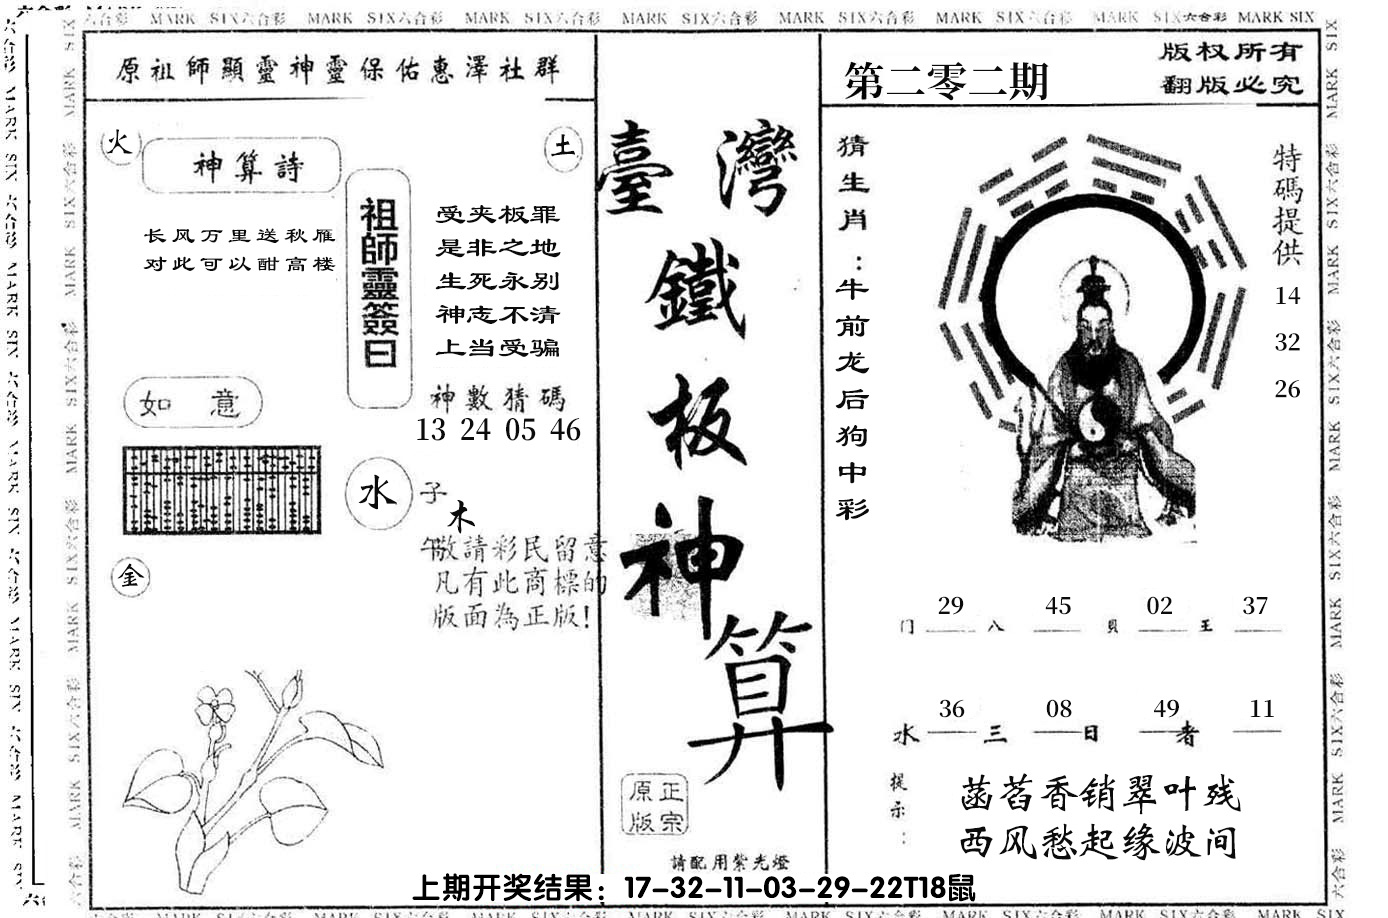 六合彩 MARK SIX六合彩 MARK SIX六合彩 MARK SIX六合彩 MARK SIX六合彩 MARK SIX六合彩 MARK SIX六合彩 MARK SIX六合彩 MARK SIX
原祖師顯靈神靈保佑惠澤社群
火
土
神算詩
长风万里送秋雁
对此可以酣高楼
祖師靈簽曰
受夹板罪
是非之地
生死永别
神志不清
上当受骗
神數猜碼
13 24 05 46
如 意
水
子
木
午
金
敬請彩民留意
凡有此商標的
版面為正版!
臺灣
鐵
板
神
算
原正
版宗
請配用紫光燈
第二零二期
版权所有
翻版必究
猜生肖:牛前龙后狗中彩
特碼提供
14
32
26
29 45 02 37
门 八 貝 王
36 08 49 11
水 三 日 者
提示:
菡萏香销翠叶残
西风愁起缘波间
上期开奖结果：17-32-11-03-29-22T18鼠